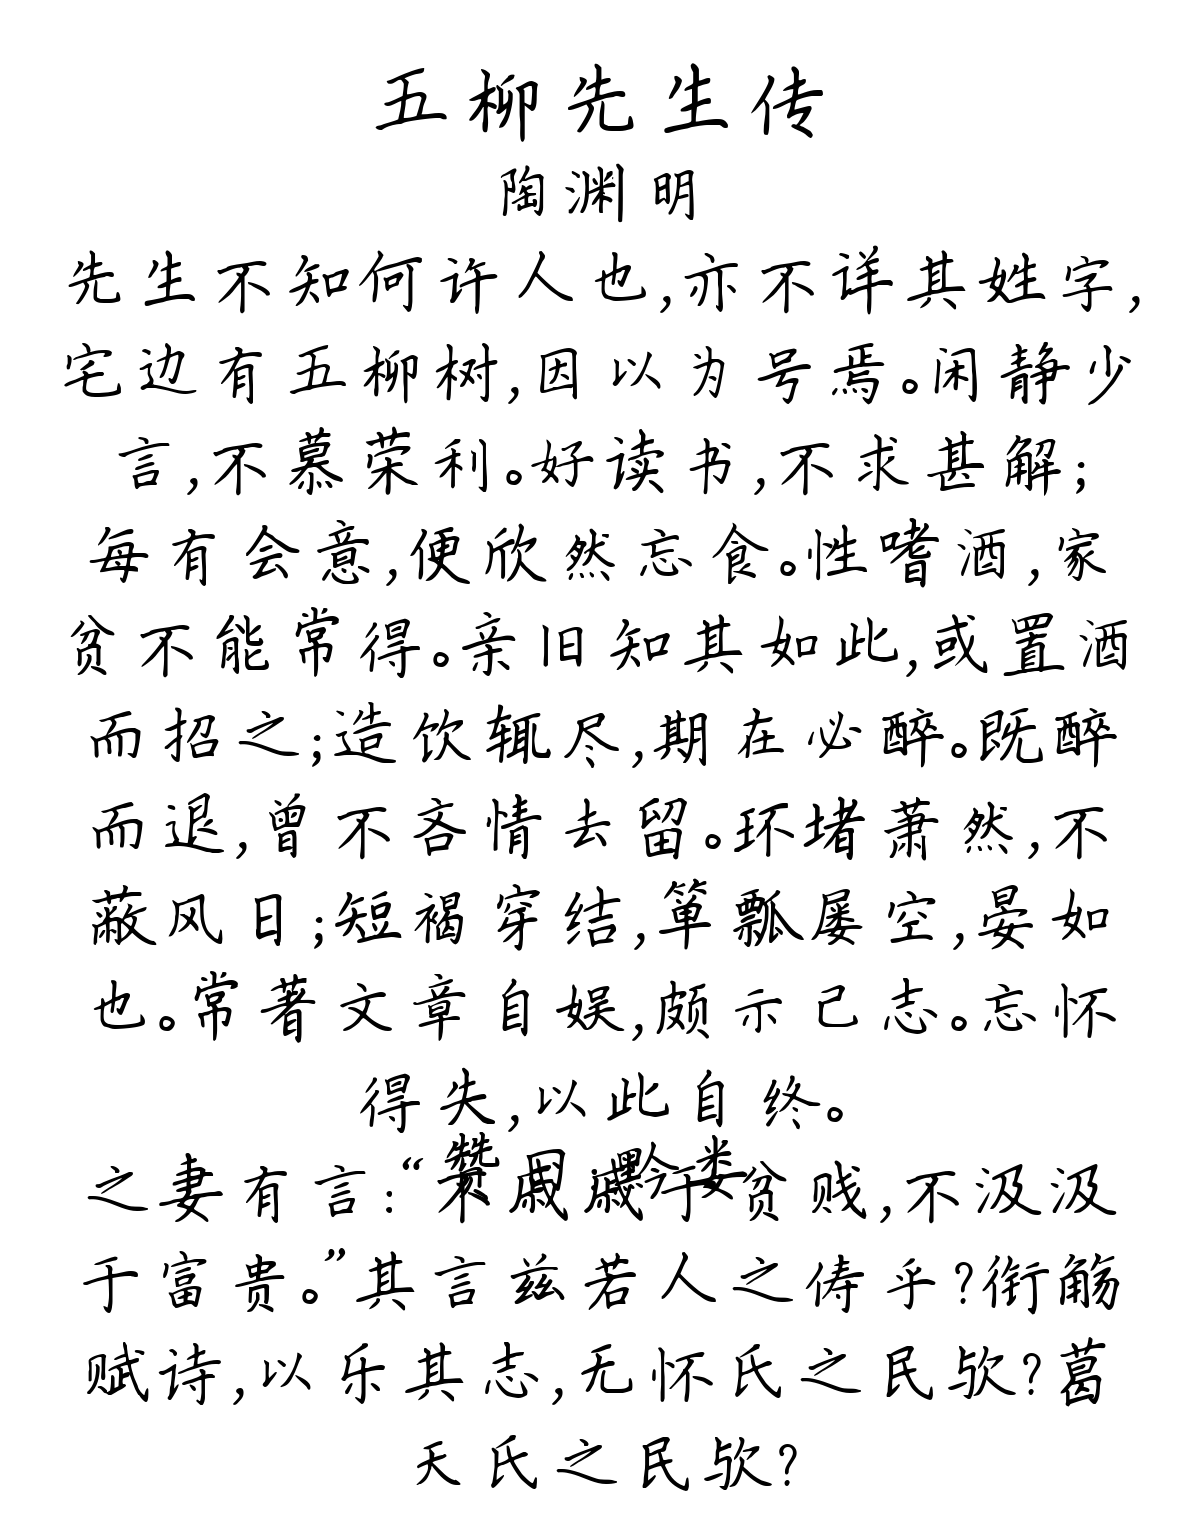 五柳先生传
陶渊明
先生不知何许人也,亦不详其姓字,
宅边有五柳树,因以为号焉。闲静少
言,不慕荣利。好读书,不求甚解;
每有会意,便欣然忘食。性嗜酒,家
贫不能常得。亲旧知其如此,或置酒
而招之;造饮辄尽,期在必醉。既醉
而退,曾不吝情去留。环堵萧然,不
蔽风日;短褐穿结,箪瓢屡空,晏如
也。常著文章自娱,颇示己志。忘怀
得失,以此自终。
赞曰:黔娄
之妻有言:“不戚戚于贫贱,不汲汲
于富贵。”其言兹若人之俦乎?衔觞
赋诗,以乐其志,无怀氏之民欤?葛
天氏之民欤?